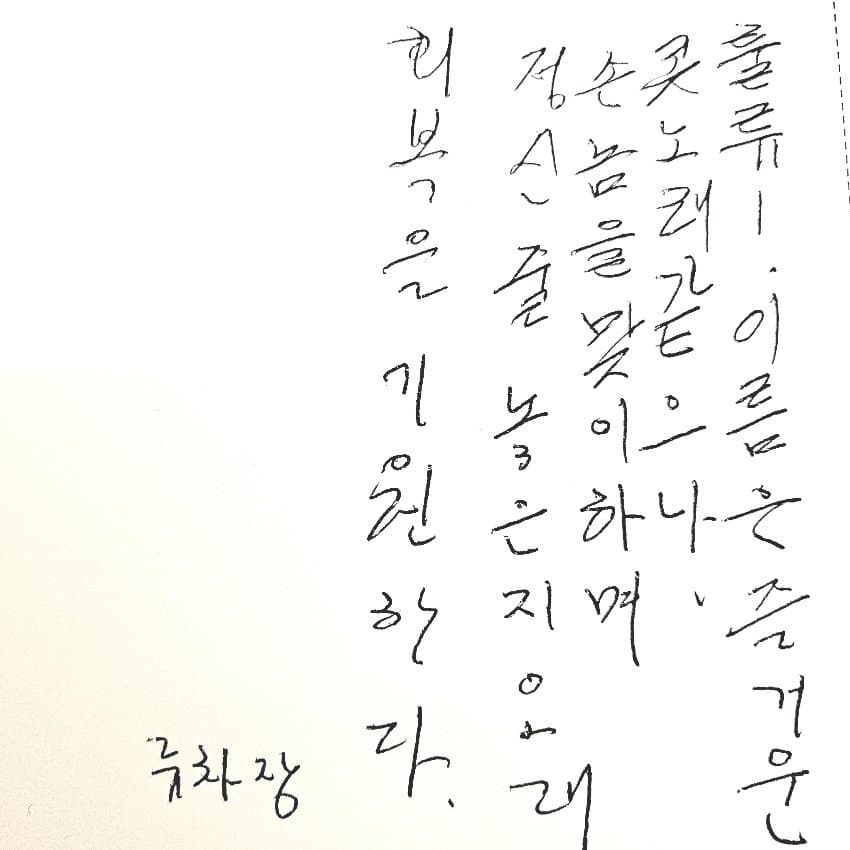 룰류ㅣ. 이름은 즐거운
콧노래같으나,
손놈을 맞이하며
정신줄 놓은지 오래
회복을 기원한다.
류차장